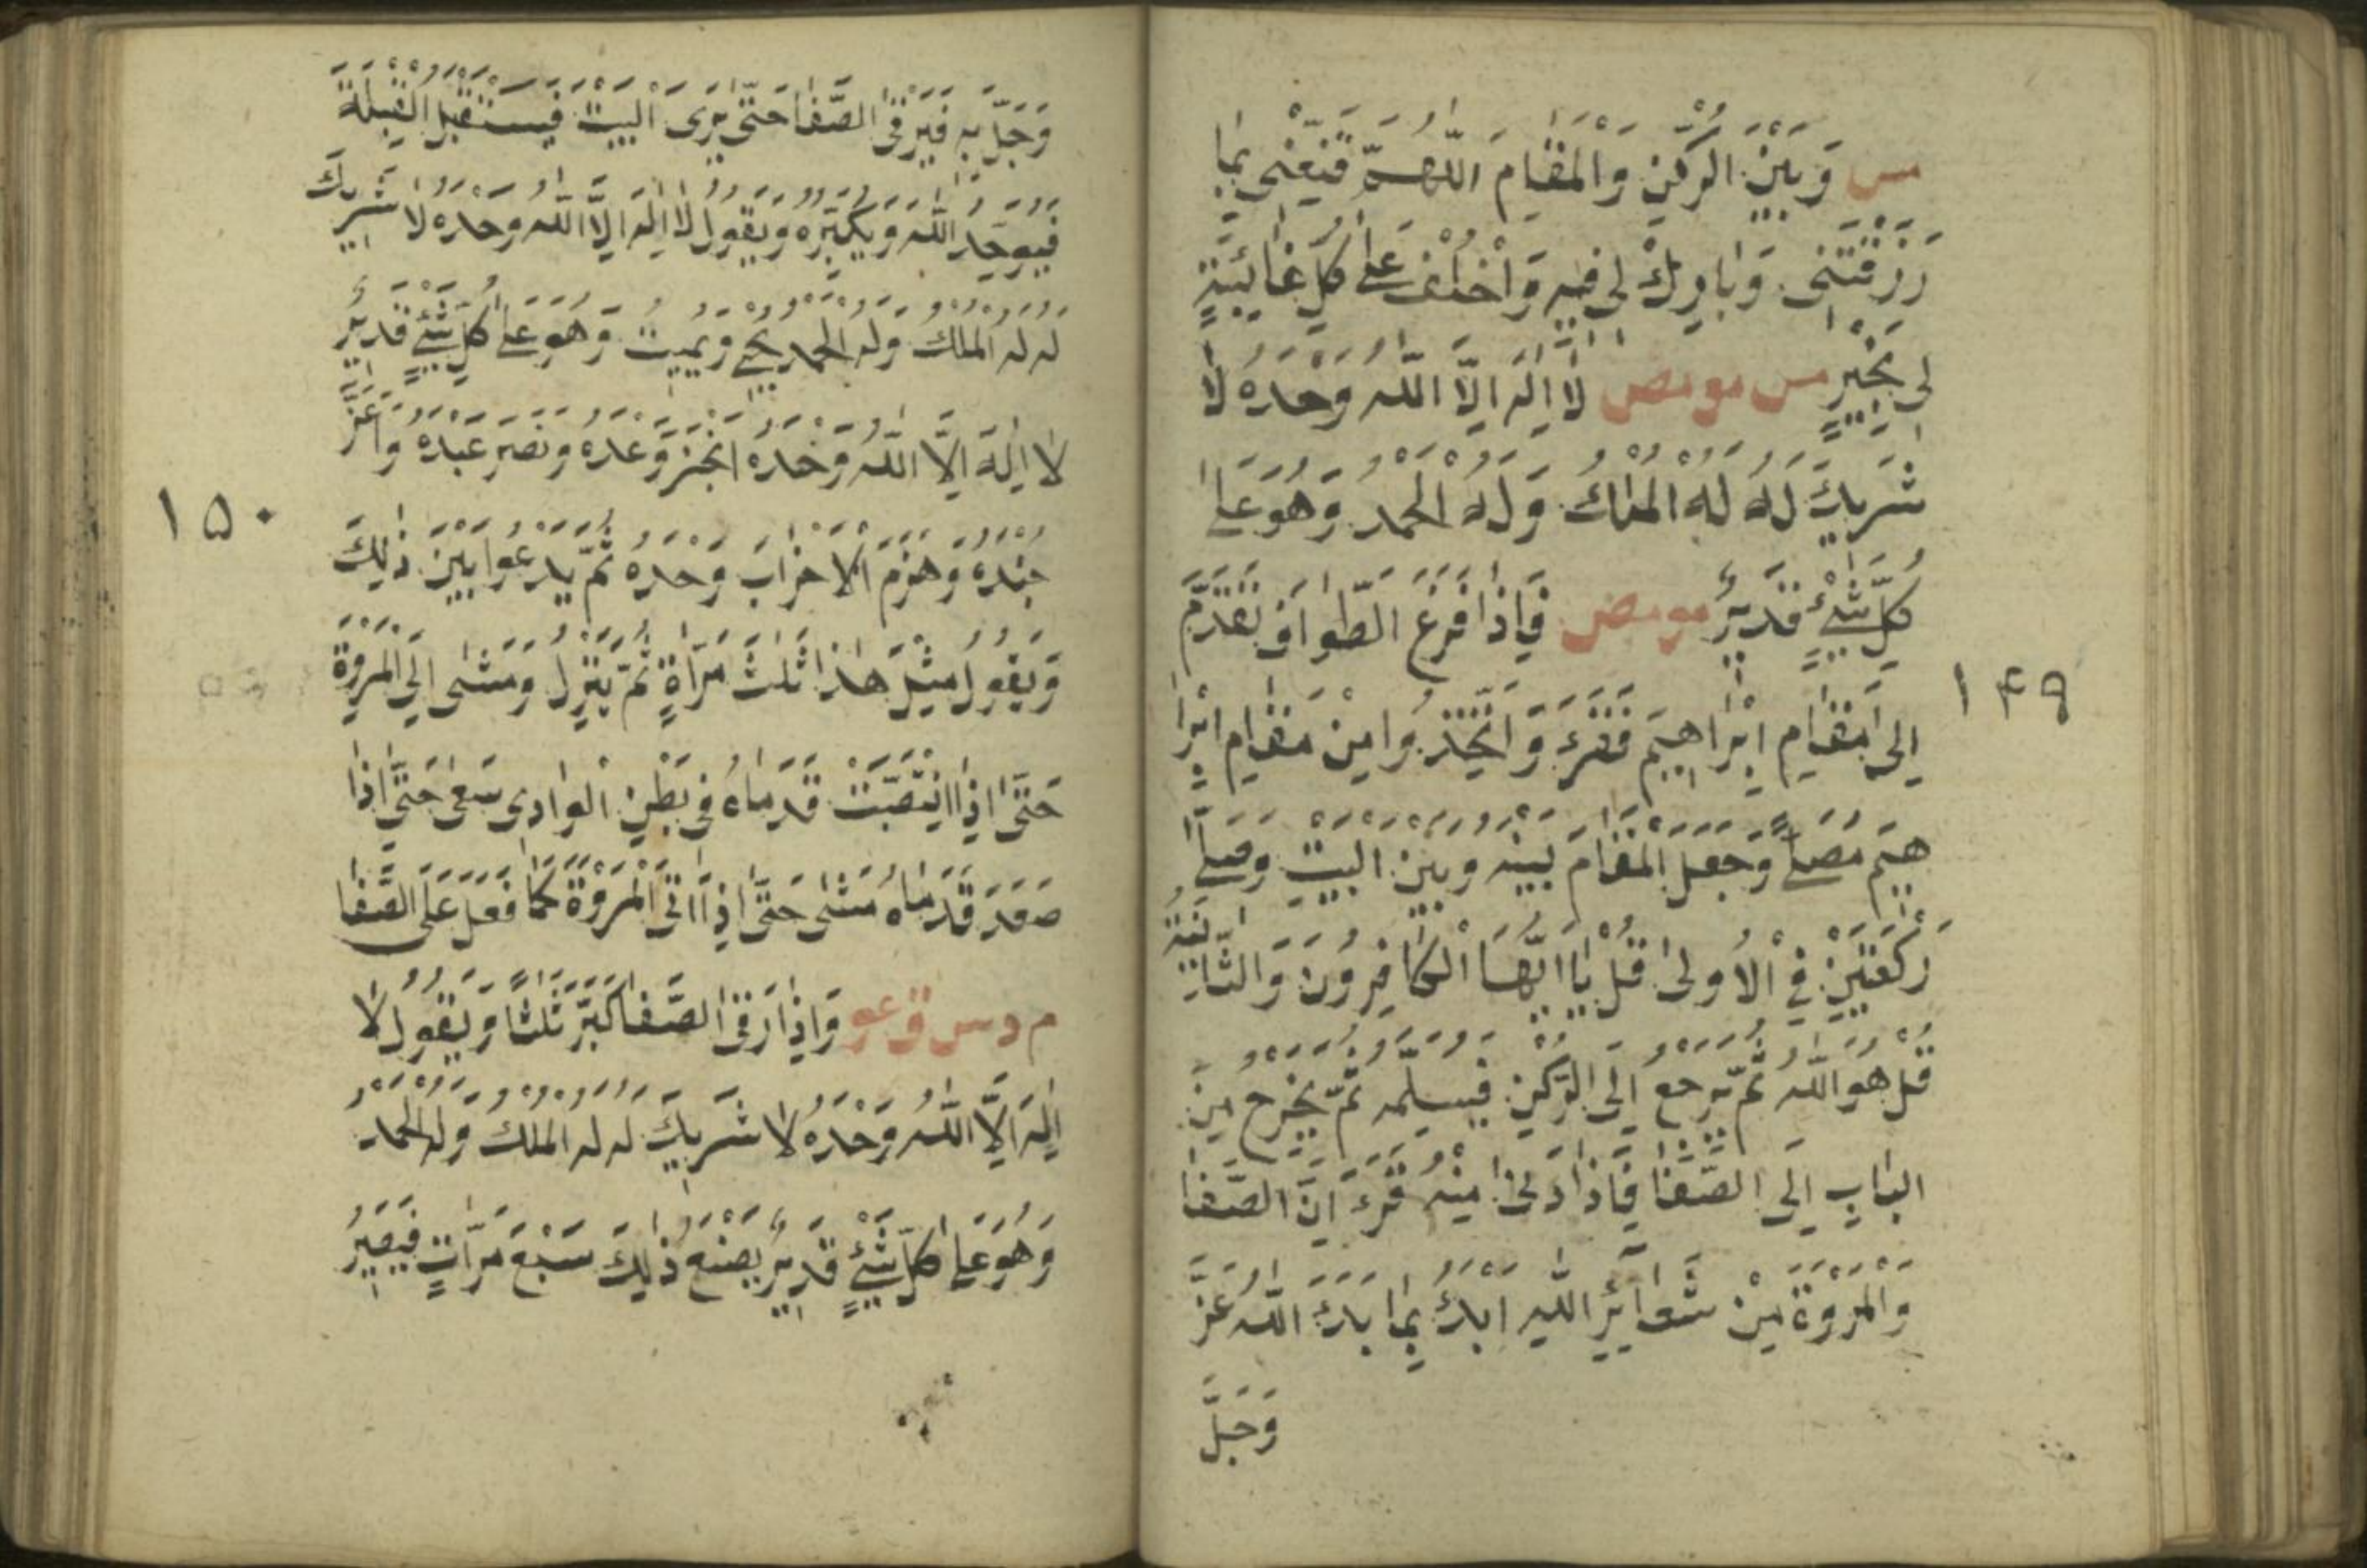 مس وَبَيْنَ الرُّكْنِ وَالْمَقَامِ اَللّٰهُمَّ قَنِّعْنِى بِمَا
رَزَقْتَنِى وَبَارِكْ لِى فِيهِ وَاخْلُفْ عَلٰى كُلِّ غَائِبَةٍ
لِى بِخَيْرٍ مس مو مص لَا اِلٰهَ اِلَّا اللّٰهُ وَحْدَهُ لَا
شَرِيكَ لَهُ لَهُ الْمُلْكُ وَلَهُ الْحَمْدُ وَهُوَ عَلٰى
كُلِّ شَيْءٍ قَدِيرٌ مو مص فَاِذَا فَرَغَ الطَّوَافَ تَقَدَّمَ
اِلٰى مَقَامِ اِبْرَاهِيمَ فَقَرَءَ وَاتَّخِذُوا مِنْ مَقَامِ اِبْرَا
هِيمَ مُصَلًّى وَجَعَلَ الْمَقَامَ بَيْنَهُ وَبَيْنَ الْبَيْتِ وَصَلّٰى
رَكْعَتَيْنِ فِى الْاُولٰى قُلْ يَا اَيُّهَا الْكَافِرُونَ وَالثَّانِيَةِ
قُلْ هُوَ اللّٰهُ ثُمَّ يَرْجِعُ اِلَى الرُّكْنِ فَيَسْتَلِمُهُ ثُمَّ يَخْرُجُ مِنَ
الْبَابِ اِلَى الصَّفَا فَاِذَا دَنٰى مِنْهُ قَرَءَ اِنَّ الصَّفَا
وَالْمَرْوَةَ مِنْ شَعَآئِرِ اللّٰهِ اَبْدَءُ بِمَا بَدَءَ اللّٰهُ عَزَّ
وَجَلَّ
١٤٩
وَجَلَّ بِهِ فَيَرْقَى الصَّفَا حَتّٰى يَرَى الْبَيْتَ فَيَسْتَقْبِلُ الْقِبْلَةَ
فَيُوَحِّدُ اللّٰهَ وَيُكَبِّرُهُ وَيَقُولُ لَا اِلٰهَ اِلَّا اللّٰهُ وَحْدَهُ لَا شَرِيكَ
لَهُ لَهُ الْمُلْكُ وَلَهُ الْحَمْدُ يُحْيِى وَيُمِيتُ وَهُوَ عَلٰى كُلِّ شَيْءٍ قَدِيرٌ
لَا اِلٰهَ اِلَّا اللّٰهُ وَحْدَهُ اَنْجَزَ وَعْدَهُ وَنَصَرَ عَبْدَهُ وَاَعَزَّ
جُنْدَهُ وَهَزَمَ الْاَحْزَابَ وَحْدَهُ ثُمَّ يَدْعُوا بَيْنَ ذٰلِكَ
وَيَقُولُ مِثْلَ هٰذَا ثَلٰثَ مَرَّاةٍ ثُمَّ يَنْزِلُ وَمَشٰى اِلَى الْمَرْوَةِ
حَتّٰى اِذَا انْتَصَبَتْ قَدَمَاهُ فِى بَطْنِ الْوَادِى سَعٰى حَتّٰى اِذَا
صَعَدَ قَدَمَاهُ مَشٰى حَتّٰى اِذَا اَتَى الْمَرْوَةَ كَمَا فَعَلَ عَلَى الصَّفَا
م د س ق عو وَاِذَا رَقَى الصَّفَا كَبَّرَ ثَلٰثًا وَيَقُولُ لَا
اِلٰهَ اِلَّا اللّٰهُ وَحْدَهُ لَا شَرِيكَ لَهُ لَهُ الْمُلْكُ وَلَهُ الْحَمْدُ
وَهُوَ عَلٰى كُلِّ شَيْءٍ قَدِيرٌ يَصْنَعُ ذٰلِكَ سَبْعَ مَرَّاتٍ فَيَصِيرُ
١٥٠